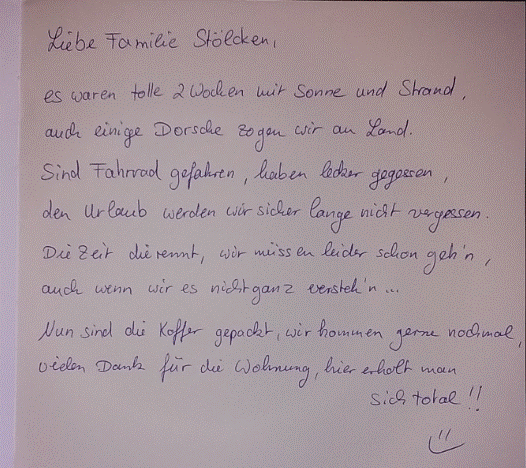 Liebe Familie Stölcken,
es waren tolle 2 Wochen mit Sonne und Strand,
auch einige Dorsche zogen wir an Land.
Sind Fahrrad gefahren, haben lecker gegessen,
den Urlaub werden wir sicher lange nicht vergessen.
Die Zeit die rennt, wir müssen leider schon geh'n,
auch wenn wir es nicht ganz versteh'n...
Nun sind die Koffer gepackt, wir kommen gerne nochmal,
vielen Dank für die Wohnung, hier erholt man
sich total!!